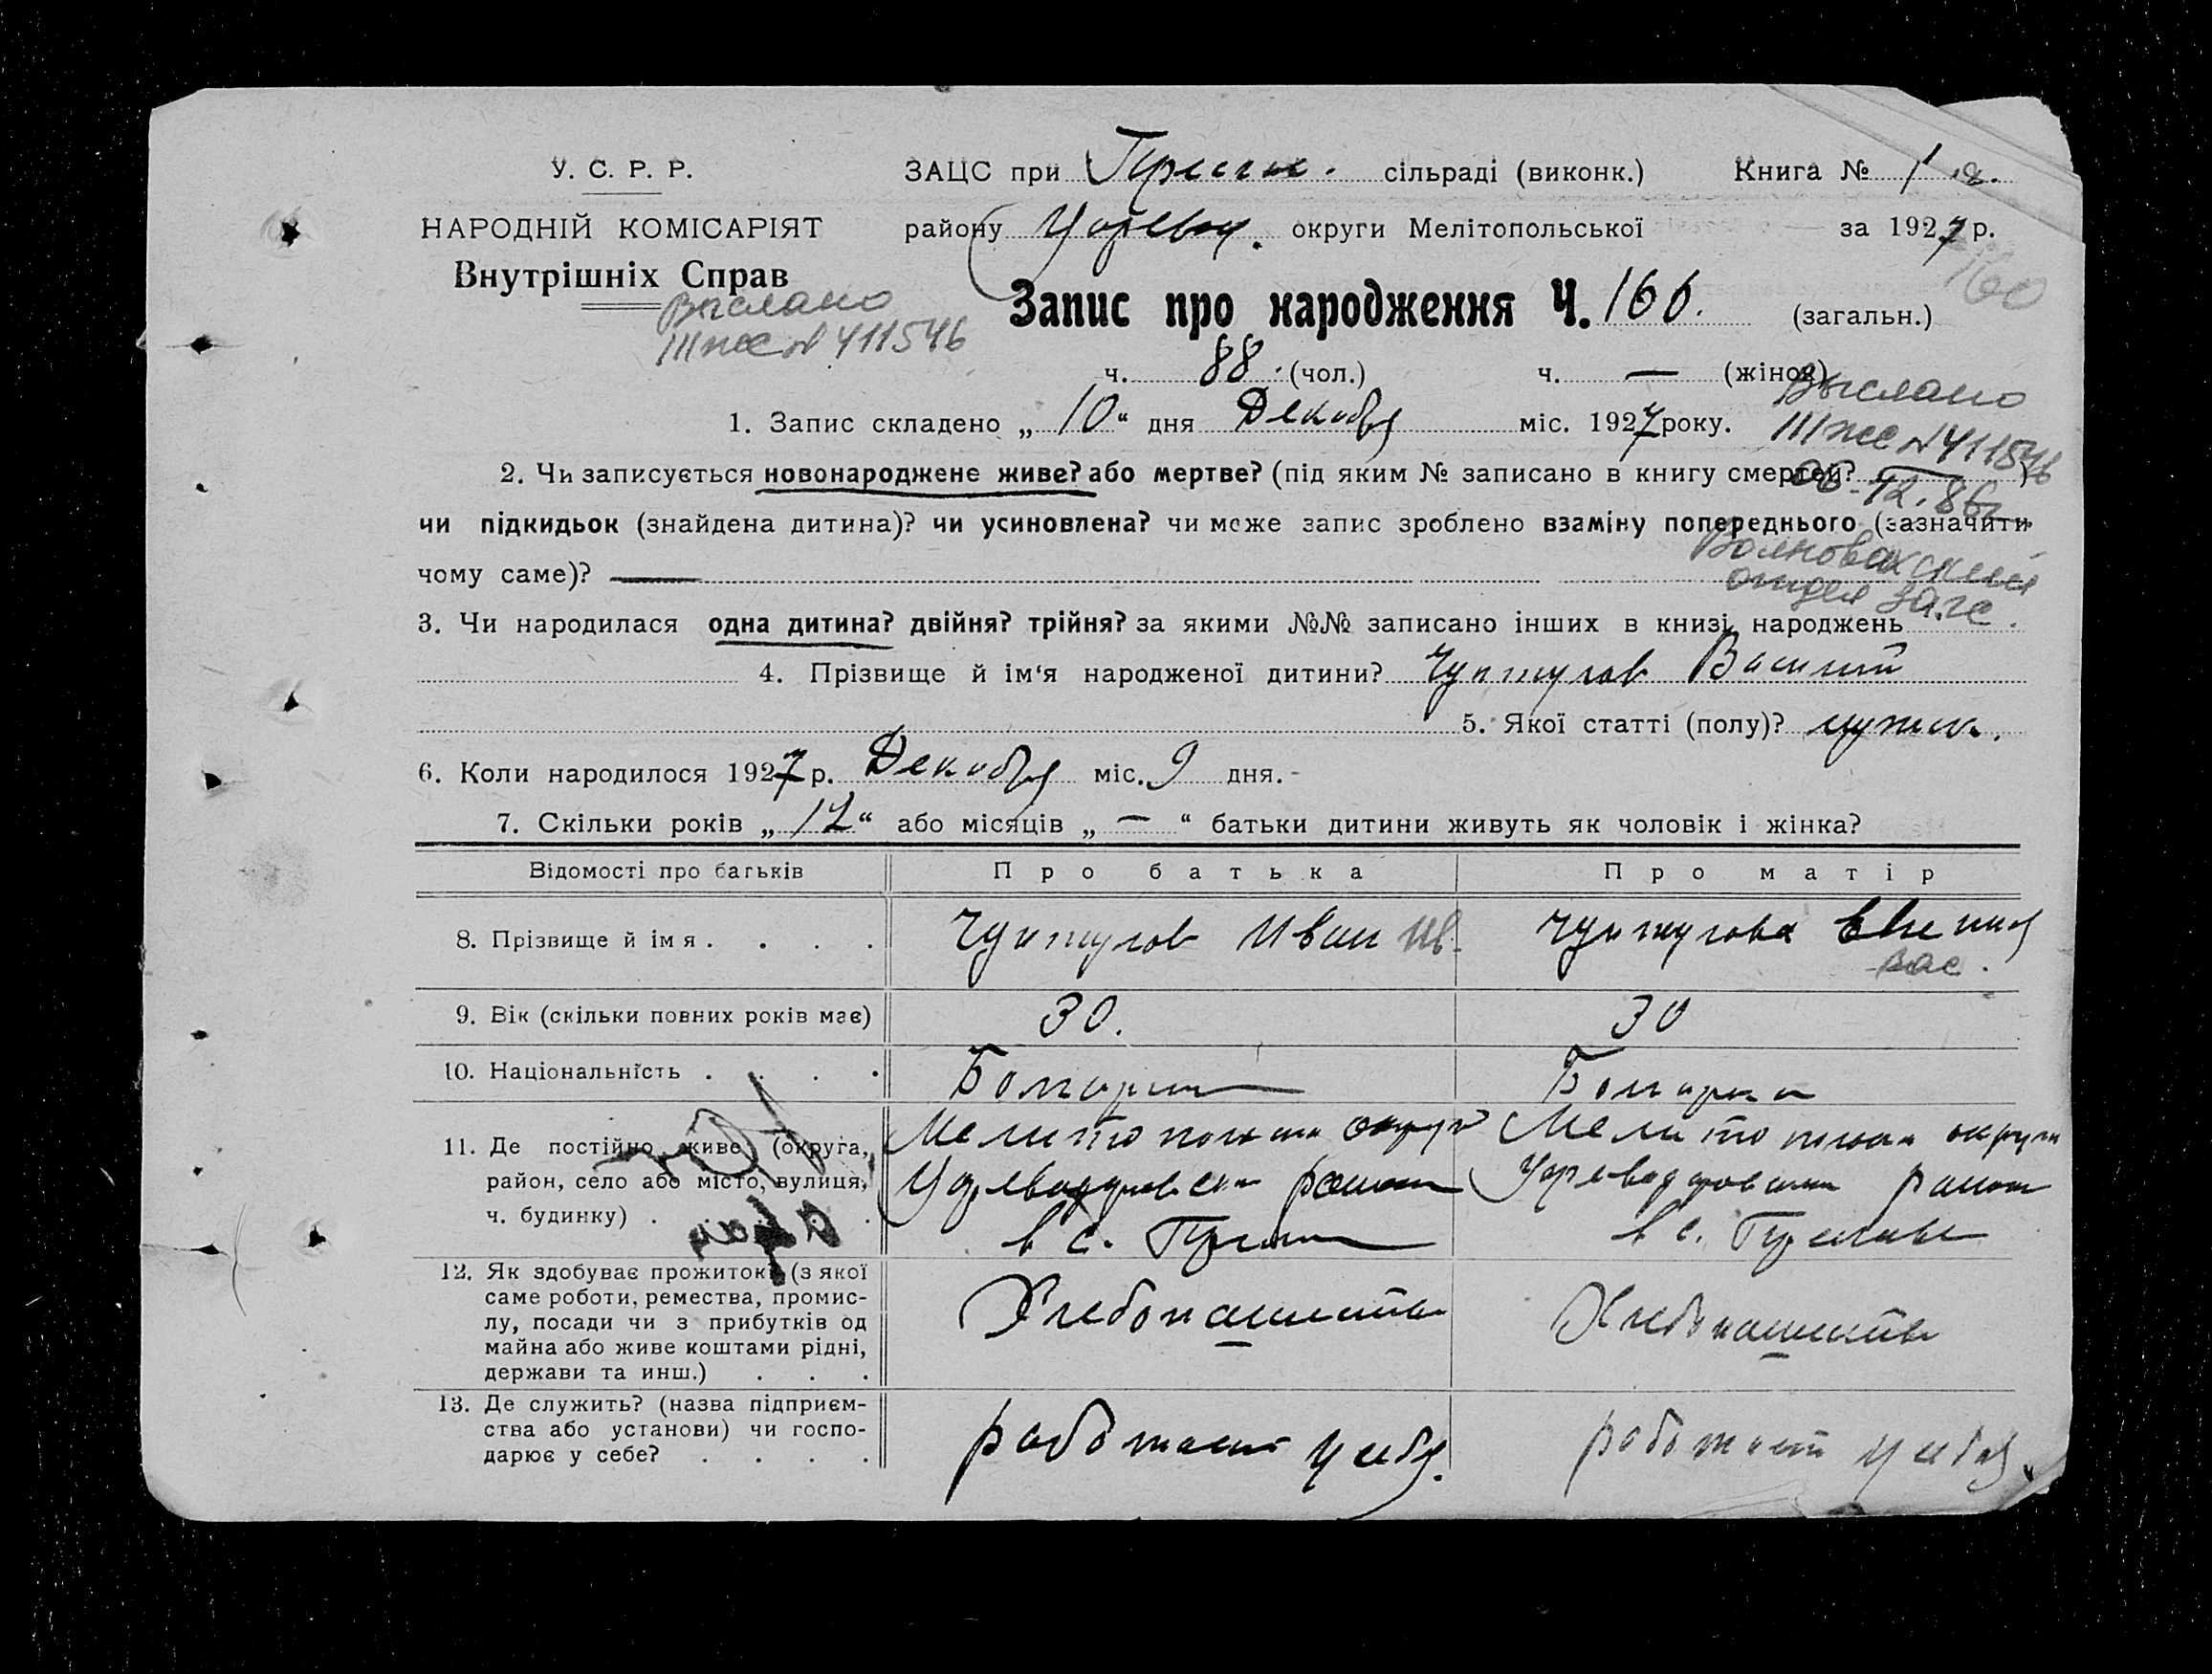 У. С. Р. Р.
НАРОДНІЙ КОМІСАРІЯТ
Внутрішніх Справ
Выслано
III жс № 411546
ЗАЦС при Преслав. сільраді (виконк.) Книга № 1
району Царевод. округи Мелітопольської за 1927 р.
160
Запис про народження Ч. 166. (загальн.)
ч. 88. (чол.) ч. — (жінок)
Выслано
1. Запис складено „ 10 “ дня Декабря міс. 1927 року.
III жс № 411546
2. Чи записується новонароджене живе? або мертве? (під яким № записано в книгу смертей? — )
06.12.86г
чи підкидьок (знайдена дитина)? чи усиновлена? чи може запис зроблено взаміну попереднього (зазначити
чому саме)? —
Волновахский
отдел загс.
3. Чи народилася одна дитина? двійня? трійня? за якими №№ записано інших в книзі народжень
4. Прізвище й ім‘я народженої дитини? Чунтулов Василий
5. Якої статті (полу)? мужск.
6. Коли народилося 1927 р. Декабря міс. 9 дня.
7. Скільки років „ 12 “ або місяців „ — “ батьки дитини живуть як чоловік і жінка?
Відомості про батьків Про батька Про матір
8. Прізвище й імя . . . . Чунтулов Иван Ив. Чунтулова Евгения
Вас.
9. Вік (скільки повних років має) 30. 30
10. Національність . . . . Болгарин Болгарка
11. Де постійно живе (округа, Мелитопольск округ Мелитопольск округи
район, село або місто, вулиця, Цареводаровский район Цареводаровский район
ч. будинку) . . . . в с. Преслав в с. Преслав
12. Як здобуває прожиток (з якої
саме роботи, ремества, промис- Хлебопашество Хлебопашество
лу, посади чи з прибутків од
майна або живе коштами рідні,
держави та инш.) . . .
13. Де служить? (назва підприєм-
ства або установи) чи госпо- работает у себя. работает у себя
дарює у себе? . . . .